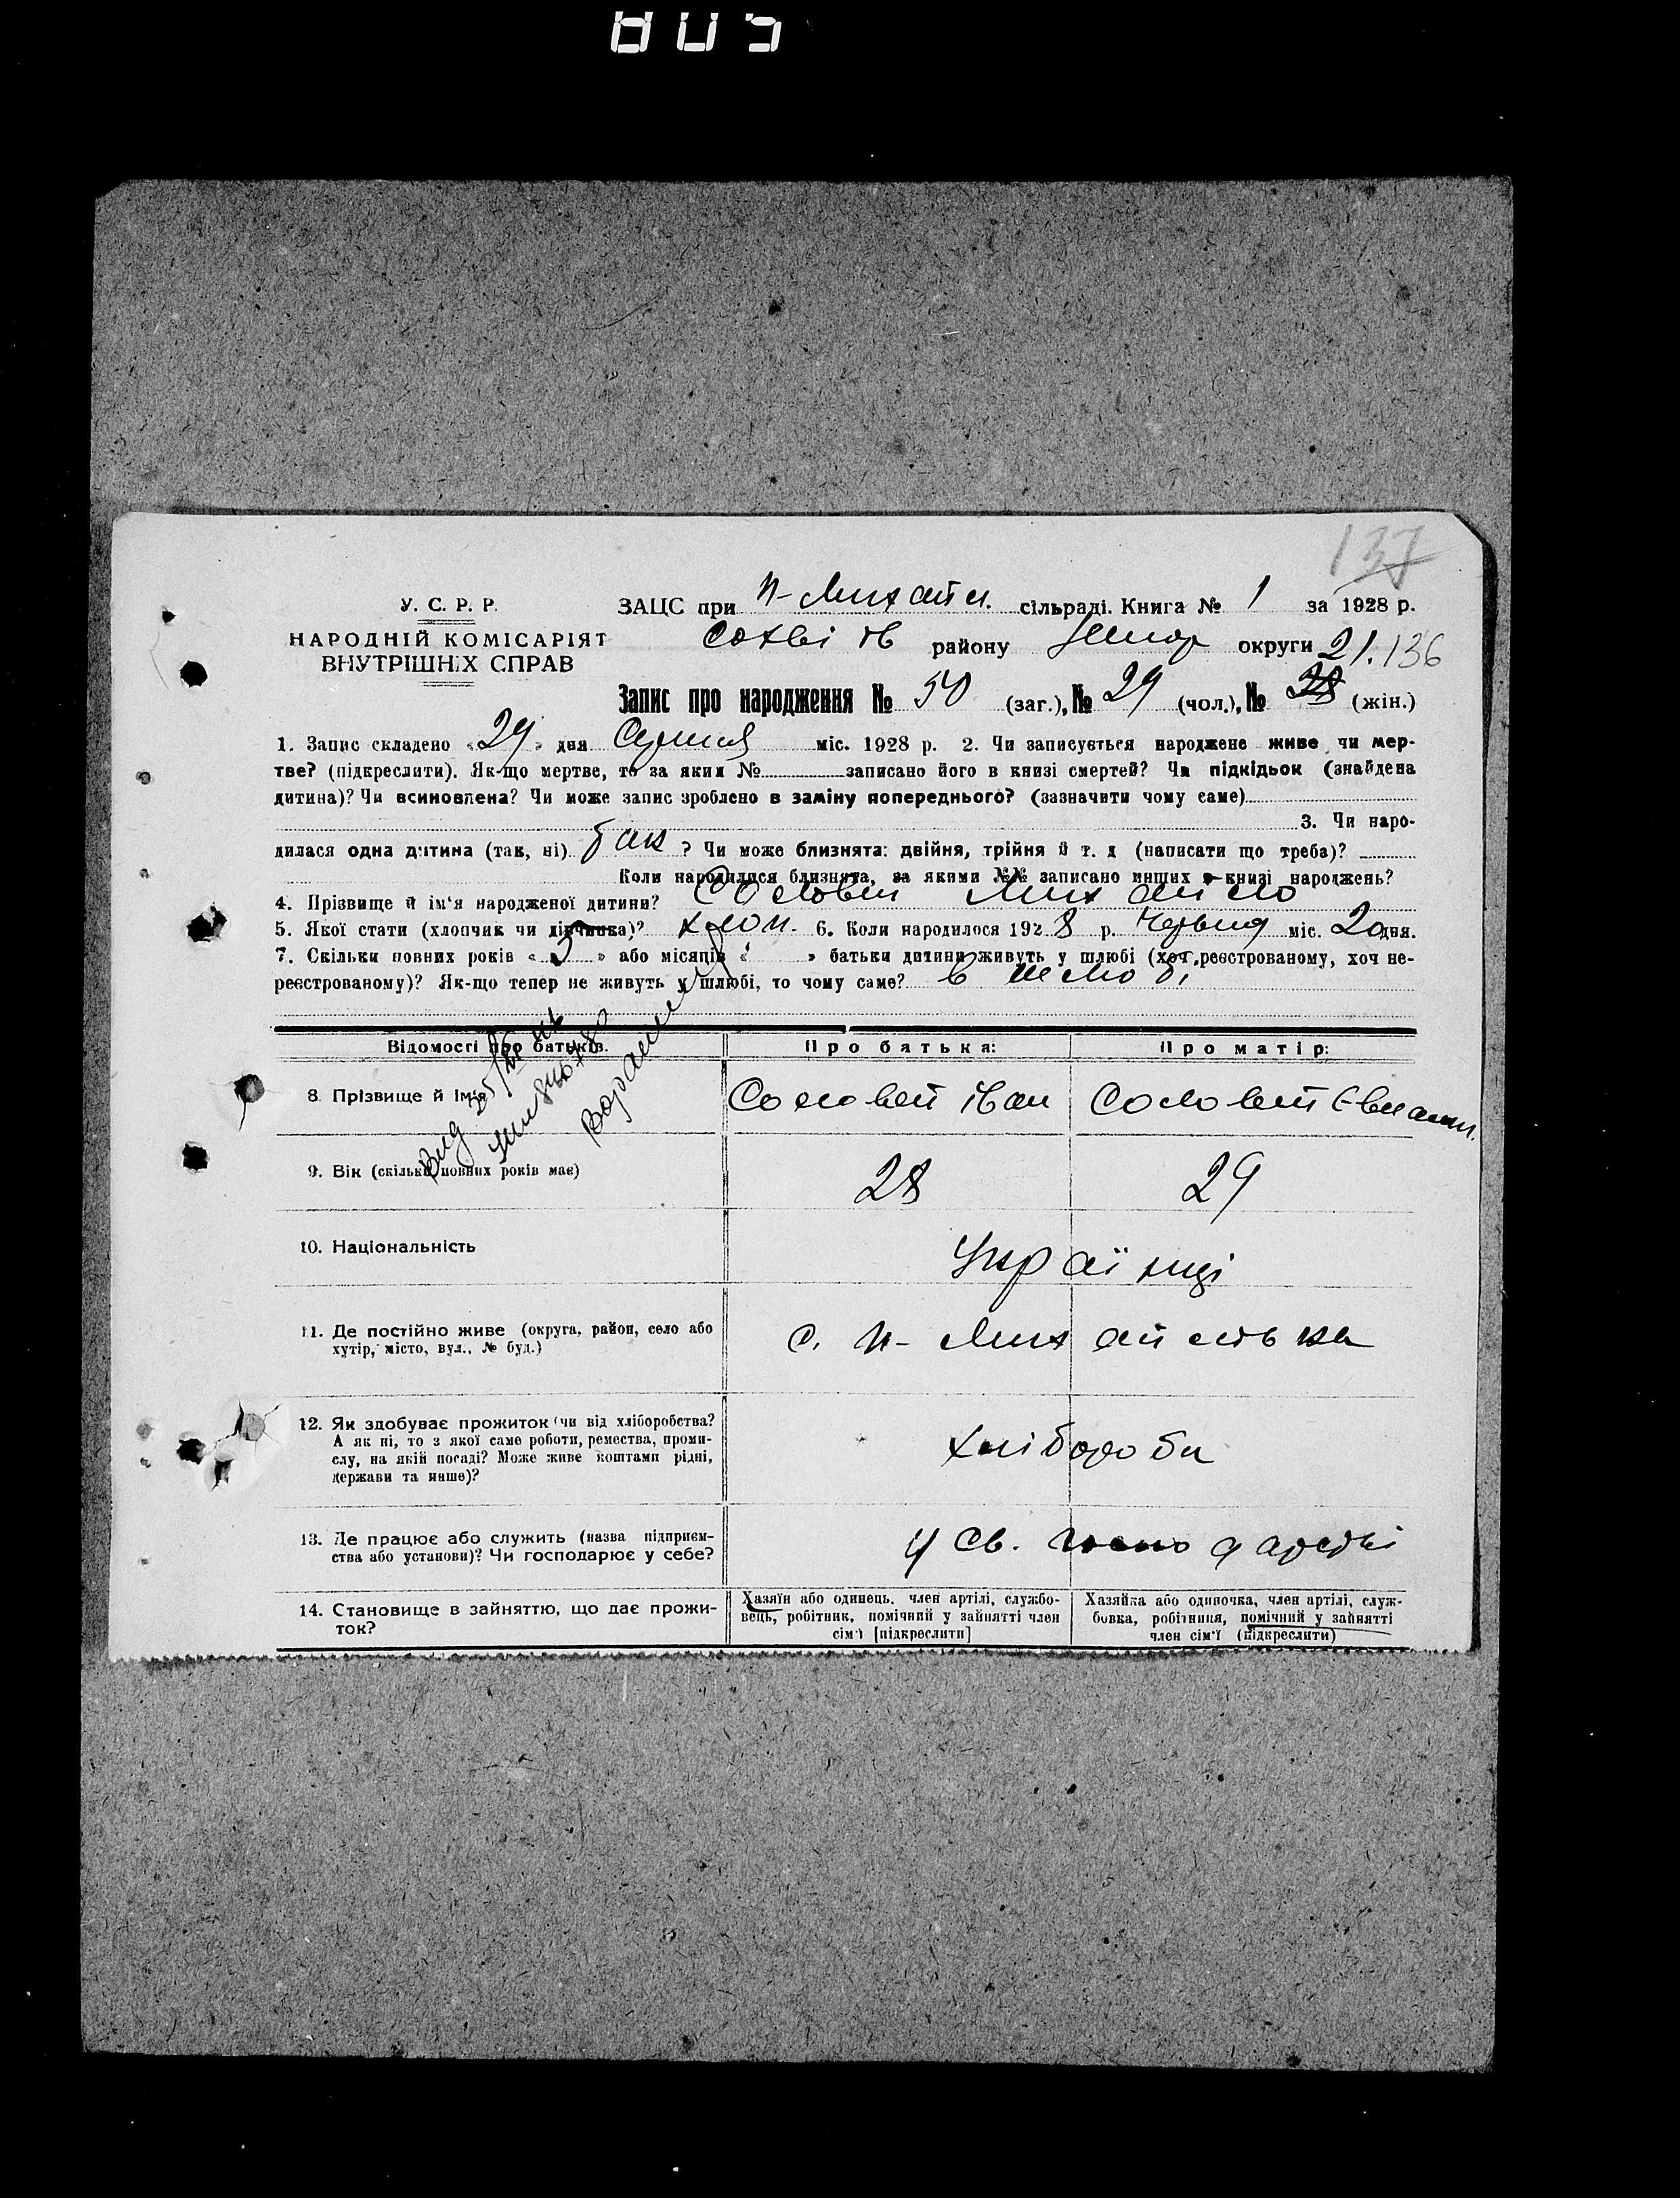 805
137
У. С. Р. Р.
НАРОДНІЙ КОМІСАРІЯТ
ВНУТРІШНІХ СПРАВ
ЗАЦС при Н-Михайл. сільраді. Книга № 1 за 1928 р.
району округи 21. 136
Запис про народження № 50 (заг.), № 29 (чол.), № (жін.)
1. Запис складено « 29 » дня Серпня міс. 1928 р. 2. Чи записується народжене живе чи мер-
тве? (підкреслити). Як-що мертве, то за яким № записано його в книзі смертей? Чи підкідьок (знайдена
дитина)? Чи всиновлена? Чи може запис зроблено в заміну попереднього? (зазначити чому саме)
3. Чи наро-
дилася одна дитина (так, ні) так ? Чи може близнята: двійня, трійня й т. д (написати що треба)?
Коли народилися близнята, за якими №№ записано инших в книзі народжень?
4. Прізвище й ім'я народженої дитини? Соловей Михайло
5. Якої стати (хлопчик чи дівчинка)? хлоп. 6. Коли народилося 192 8 р. Червня міс. 20 дня.
7. Скільки повних років « 3 » або місяців « » батьки дитини живуть у шлюбі (хоч реєстрованому, хоч не-
реєстрованому)? Як-що тепер не живуть у шлюбі, то чому саме? в шлюбі
Відомості про батьків. Про батька: Про матір:
8. Прізвище й ім'я Соловей Іван Соловей
9. Вік (скільки повних років має) 28 29
10. Національність Українці
11. Де постійно живе (округа, район, село або
хутір, місто, вул., № буд.) с. Н-Михайлівка
12. Як здобуває прожиток (чи від хліборобства?
А як ні, то з якої саме роботи, ремества, проми-
слу, на якій посаді? Може живе коштами рідні,
держави та инше)? хлібороби
13. Де працює або служить (назва підприєм-
ства або установи)? Чи господарює у себе? У св. господарстві
14. Становище в зайняттю, що дає прожи-
ток?
Хазяїн або одинець, член артілі, службо-
вець, робітник, помічний у зайнятті член
сім'ї [підкреслити]
Хазяйка або одиночка, член артілі, служ-
бовка, робітниця, помічний у зайнятті
член сім'ї (підкреслити)